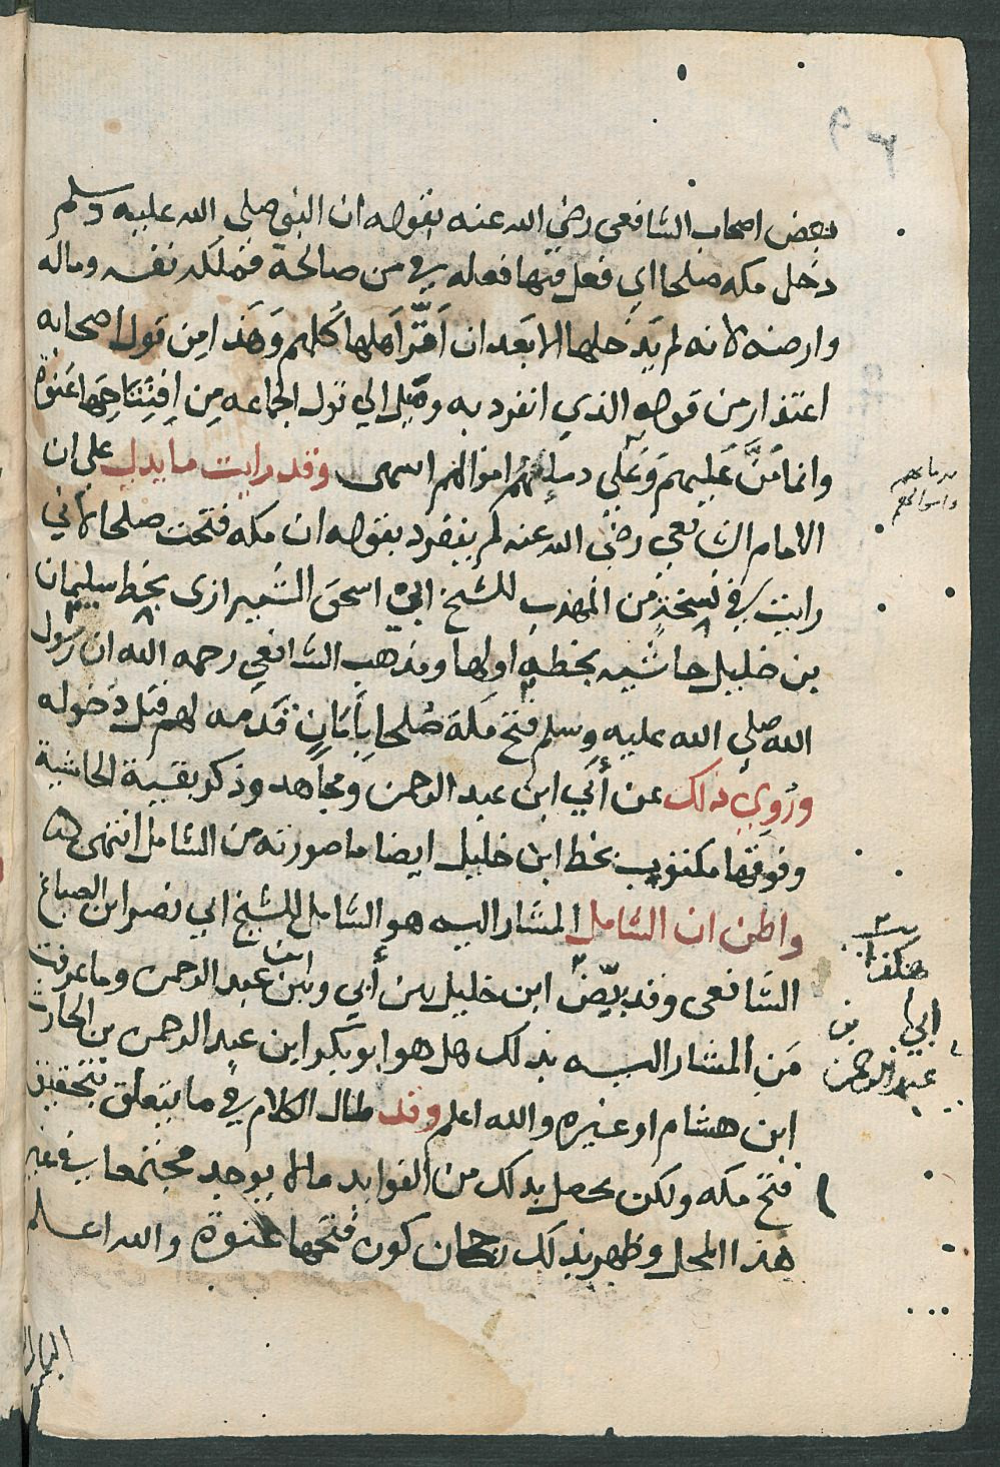 ٣٩
بعض اصحاب الشافعى رضي الله عنه بقوله ان النبي صلى الله عليه وسلم
دخل مكه صلحا اي فعل فيها فعله في من صالحه فملكه نفسه وماله
وارضه لانه لم يدخلها الا بعد ان امّن اهلها كلهم وهذا من قول اصحابه
اعتذار من قوله الذي انفرد به وميل الي قول الجماعه من افتتاحها عنوة
وانما منّ عليهم وعلي دمائهم اموالهم انتهى وقد رايت ما يدل على ان
الامام الشافعي رضي الله عنه لم ينفرد بقوله ان مكه فتحت صلحا لاني
رايت في نسخة من المهذب للشيخ ابي اسحق الشيرازى بخط سليمان
بن خليل حاشيه بخطه اولها ومذهب الشافعي رحمه الله ان رسول
الله صلي الله عليه وسلم فتح مكة صلحا بامان قدمه لهم قبل دخوله
وروي ذلك عن أبي ابن عبد الرحمن ومجاهد وذكر بقية الحاشية
وفوقها مكتوب بخط ابن خليل ايضا ما صورته من الشامل انتهى هذا
واظن ان الشامل المشار اليه هو الشامل للشيخ ابي نصر ابن الصباغ
الشافعى وقد بيّض ابن خليل بين أبي وبين ابن عبد الرحمن وما عرفت
من المشار اليه بذلك هل هو ابو بكر ابن عبد الرحمن بن الحارث
ابن هشام او غيره والله اعلم وقد طال الكلام في ما يتعلق بتحقيق
فتح مكه ولكن حصل بذلك من الفوايد مالا يوجد مجتمعا في غير
هذا المحل وظهر بذلك رجحان كون فتحها عنوة والله اعلم
هكذا
ابي بن
عبد الرحمن